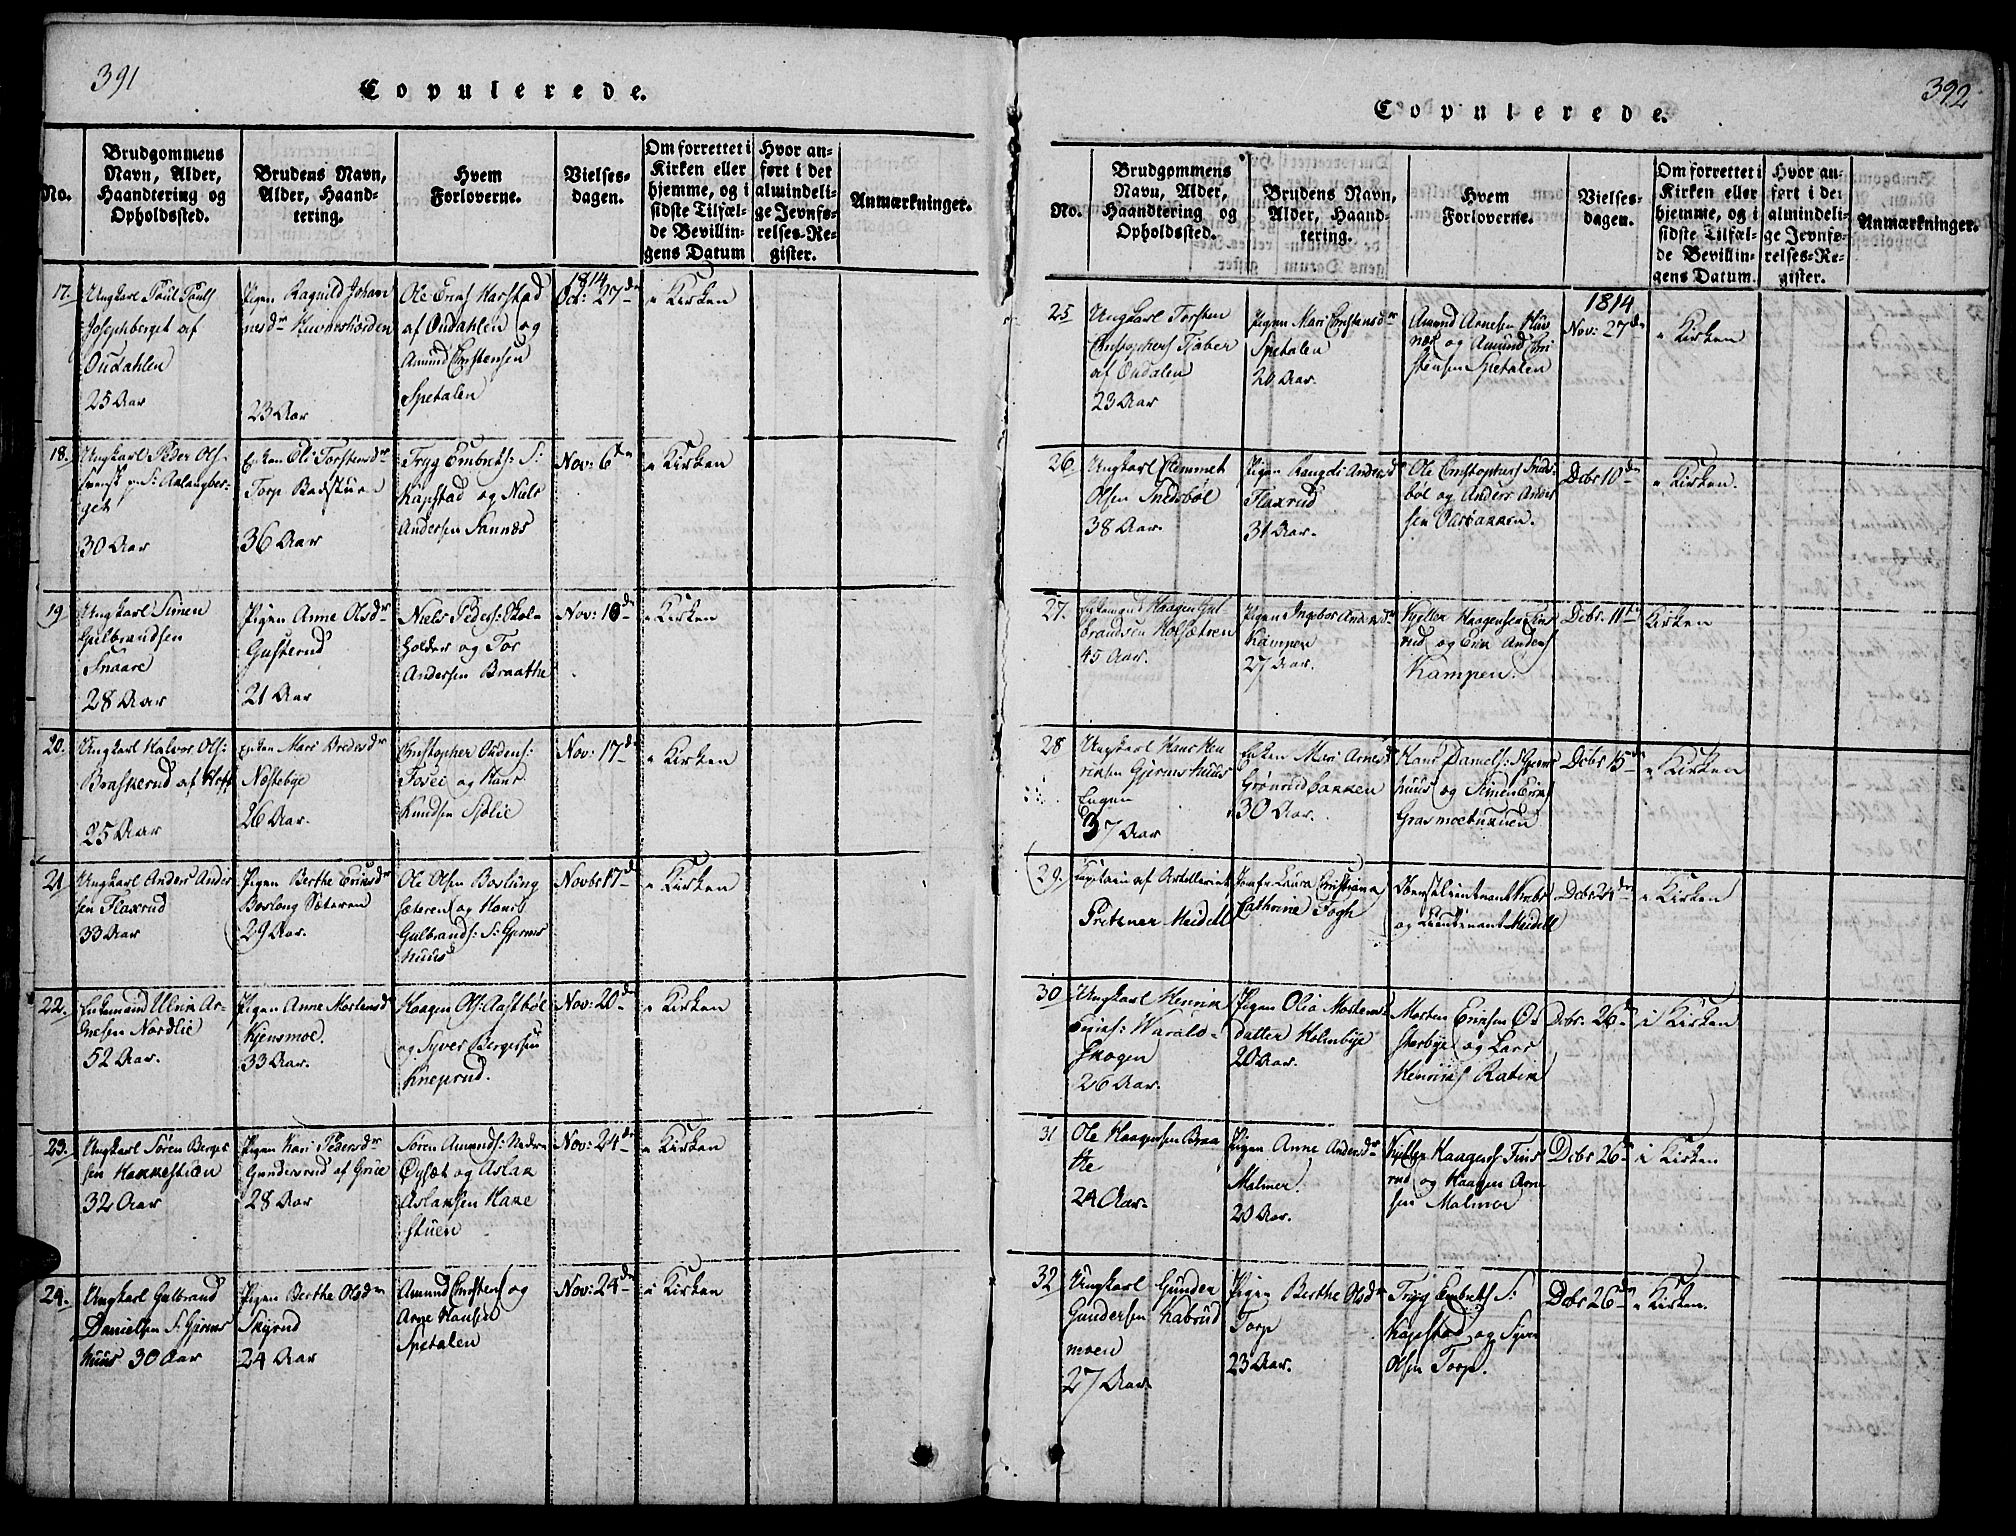 391
Copulerede.
No.
Brudgommens
Navn, Alder,
Haandtering og
Opholdssted.
Brudens Navn,
Alder, Haand-
tering.
Hvem
Forloverne.
Vielses-
dagen.
Om forrettet i
Kirken eller
hjemme, og i
sidste Tilfæl-
de Bevillin-
gens Datum
Hvor an-
ført i det
almindeli-
ge Jevnfø-
relses-Re-
gister.
Anmærkninger.
17.
Ungkarl Poul Pouls
Josephberget af
Oudahlen
25 Aar
Pigen Ragnild Johan
nesdr
23 Aar
Ole Erics Harstad
af Oudahlen og
Amund Christensen
Spetalen
1814
Oct: 27de
i Kirken
18.
Ungkarl Peder Ols.
get
30 Aar
Enken Oli Torstensdr
Torp Badstue
36 Aar
Tryg Embrets: S:
Kapstad og Niels
Andersen Sannæs
Nov: 6te
i Kirken
19
Ungkarl Simen
Gulbrandsen
Snaare
28 Aar
Pigen Anne Olsdr
Gusterud
21 Aar
Niels Peders: Skol-
holder og Tor
Andersen Braathe
Nov: 10de
i Kirken
20.
Ungkarl Halvor Ols:
Braskerud af Hoff
25 Aar
Enken Mari Bredesdr
Næstebye
26 Aar.
Christopher Oudens:
Tosei og Hans
Knudsen Sælie
Nov: 17de
i Kirken
21
Ungkarl Anders Ander
sen Flaxrud
33 Aar
Pigen Berthe Ericsdr
Boslong Sæteren
29 Aar.
Ole Olsen Boslung
sæteren og Hans
Gulbrands: S: Gjerms
huus
Novbr 17de
i Kirken
22.
Enkemand Ulrik Ar-
nesen Nordlie
52 Aar.
Pigen Anne Mortensd
Kjensmoe.
33 Aar.
Haagen Ols: Aastbøl
og Syver Bergersen
Kneprud.
Nov: 20de
i Kirken
23.
Ungkarl Søren Berger
sen Hakkestuen
32 Aar
Pigen Kari Pedersdr
Gundersrud af Grue
28 Aar
Søren Amunds: Nedre
Øysæt og Aslak
Aslaksen Hake
stuen
Nov: 24de
i Kirken
24.
Ungkarl Gulbrand
Danielsen S: Gjerms
huus 30 Aar
Pigen Berthe Olsdr
Skyrud
24 Aar
Amund Christens og
Arne Hansen
Spetalen
Nov: 24de
i Kirken
392
Copulerede.
No.
Brudgommens
Navn, Alder,
Haandtering og
Opholdssted.
Brudens Navn,
Alder, Haand-
tering.
Hvem
Forloverne.
Vielses-
dagen.
Om forrettet i
Kirken eller
hjemme, og i
sidste Tilfæl-
de Bevillin-
gens Datum.
Hvor an-
ført i det
almindeli-
ge Jevnfø-
relses-Re-
gister.
Anmærkninger.
25
Ungkarl Torsten
Christophers Tjaber
af Oudalen
23 Aar
Pigen Mari Christensdr
Spetalen
20 Aar.
Amund Arnesen
og Amund Chri
stensen Spetalen
1814
Nov: 27de
i Kirken
26
Ungkarl Clemmet
Olsen Snedsbøl
38 Aar.
Pigen Rangdi Andersd
Flaxrud
31 Aar.
Ole Christophers Sneds-
bøl og Anders Ander
sen
Debr 10de
i Kirken.
27.
Enkemand Haagen Gul
brandsen Kolsætren
45 Aar.
Pigen Ingebor Andersdr
Kampen
27 Aar.
Kjelder Haagensen
rud og Eric Anders
Kampen.
Debr. 11te
i Kirken
28
Ungkarl Hans Hen
riksen Gjermshuus
Eugen
37 Aar
Enken Mari Arnesd
Grønrudbakken
30 Aar.
Hans Daniels: Gjerms
huus og Simen Erics
Grasmoetuenen
Debr 15de
i Kirken
29.
Capitain af Artelleriet
Prettner Meidell
Jomfr Laura Christiana
Cathrine Fogh
Oberstlieutenant Krebs
og Lieutenant Meidell
Debr 24de
i Kirken
30
Ungkarl Henrik
Erics: Warald-
skogen
26 Aar.
Pigen Olia Mortens
datter Holmbye
20 Aar.
Morten Ericsen Øs
sterbye og Lars
Henriks Ratik
Debr. 26de
i Kirken
31
Ole Haagensen Braa
the
24 Aar.
Pigen Anne Andersdr
Malmer.
20 Aar.
rud og Haagen Arne
sen Malmer
Debr 26de
i Kirken
32
Ungkarl Gunder
Gundersen Kabrud
moen
27 Aar
Pigen Berthe Olsdr
Torp
23 Aar.
Tryg Embrets S:
Kapstad og Syver
Olsen Torp.
Debr 26de
i Kirken.